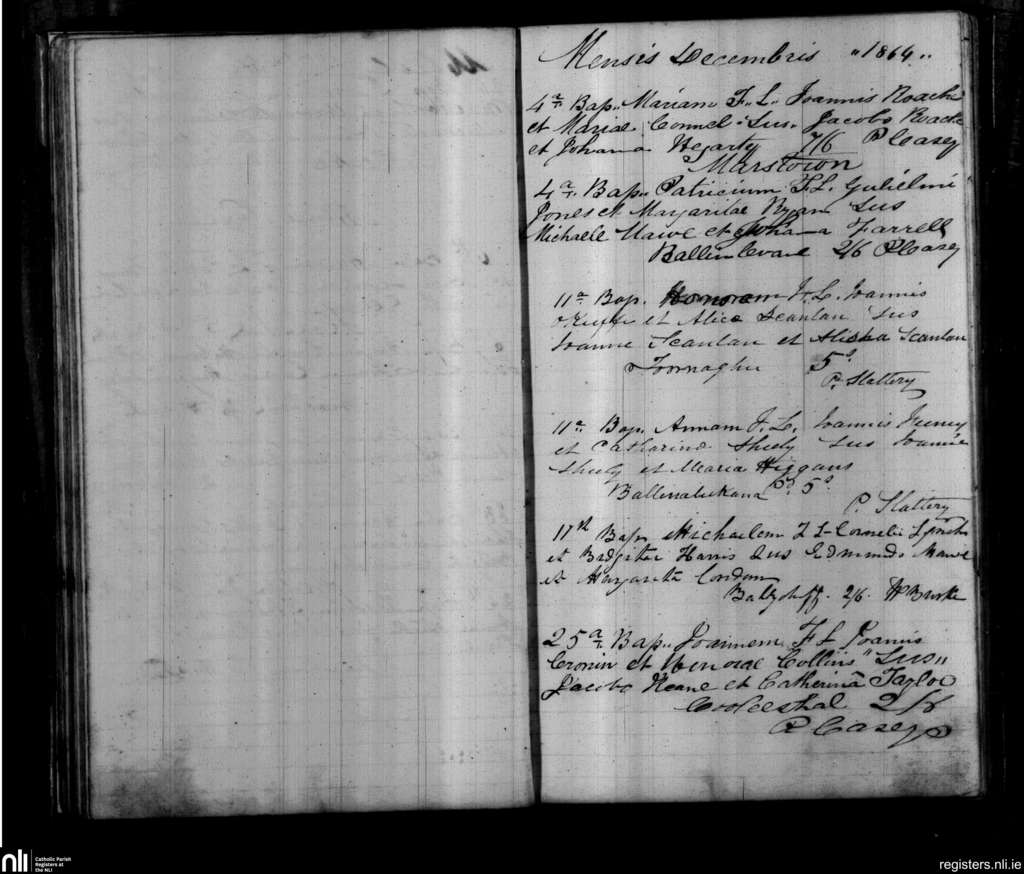 Mensis Decembris "1864"
4a Bap. Mariam F. L. Joannis Roache
et Mariae Connel Sus. Jacobo Roache
et Johana Hegarty 7/6 P Casey
Marstown
4a Bap. Patricium F. L. Gulielmi
Jones et Margaritae Ryan Sus
Michaele Mawe et Johana Farrell
2/6 P Casey
11a Bap. Honoram F. L. Joannis
et Alice Scanlan Sus
Joanne Scanlan et Scanlan
5s
P. Slattery
11a Bap. Annam F. L. Joannis
et Catharina Sheely Sus Joanne
Sheely et Maria Higgans
5s
P. Slattery
Bap. Michaelem F L Cornelii Lynch
et Bridgitae Harris Sus Edmundo Mawe
et Margarita Condon
2/6. W Burke
25a Bap. Joannem F L Joannis
Cronin et Honorae Collins "Sus"
Jacobo Keane et Catherina Taylor
2/6
P Casey
nli
Catholic Parish
Registers at
the NLI
registers.nli.ie